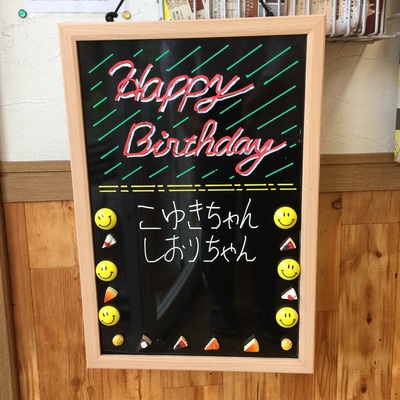 Happy
Birthday
こゆきちゃん
しおりちゃん